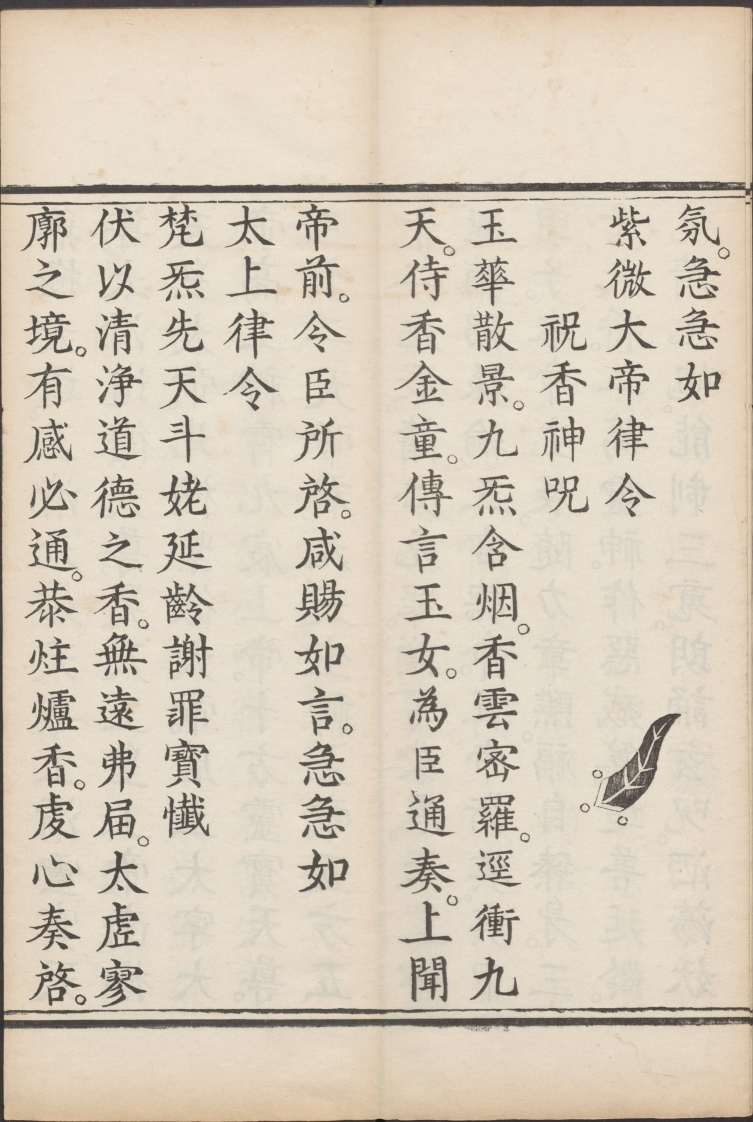 氛。急急如
紫微大帝律令
祝香神呪
玉華散景。九炁含烟。香雲密羅。逕衝九
天。侍香金童。傳言玉女。為臣通奏。上聞
帝前。令臣所啓。咸賜如言。急急如
太上律令
梵炁先天斗姥延齡謝罪寶懺
伏以清浄道德之香。無遠弗届。太虛寥
廓之境。有感必通。恭炷爐香。虔心奏啓。